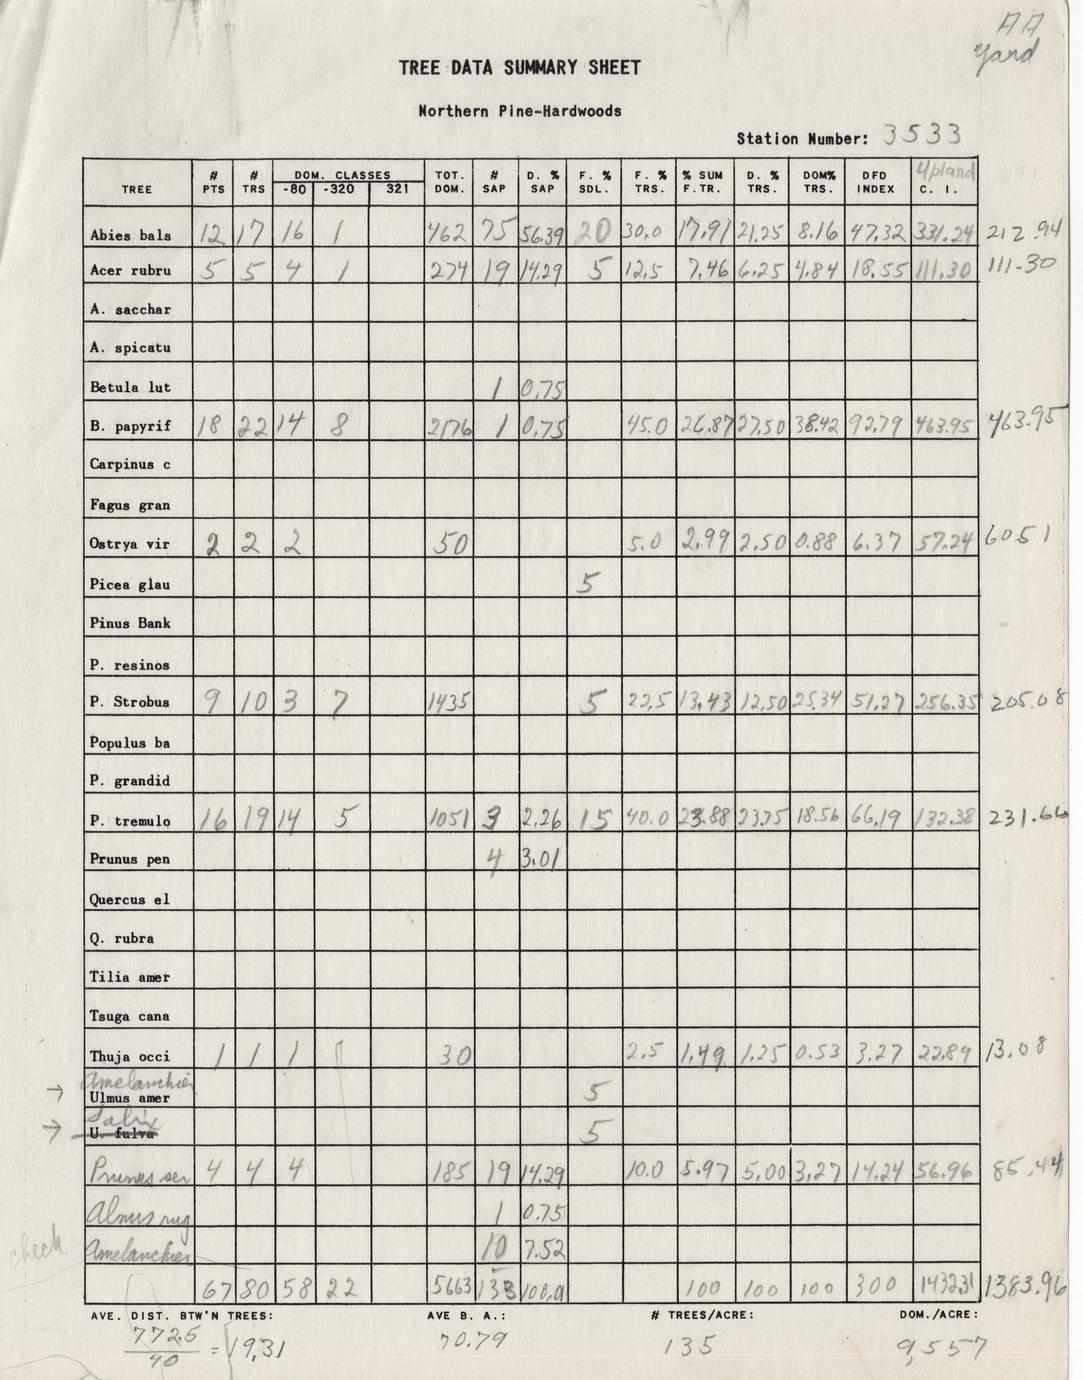 AA
yard
TREE DATA SUMMARY SHEET
Northern Pine-Hardwoods
Station Number: 3533
TREE # PTS # TRS DOM. CLASSES -80 -320 321 TOT. DOM. # SAP D. % SAP F. % SDL. F. % TRS. % SUM F.TR. D. % TRS. DOM% TRS. DFD INDEX Upland C. I.
Abies bals 12 17 16 1 462 75 56.39 20 30.0 17.91 21.25 8.16 47.32 331.24 212.94
Acer rubru 5 5 4 1 274 19 14.29 5 12.5 7.46 6.25 4.84 18.55 111.30 111.30
A. sacchar
A. spicatu
Betula lut 1 0.75
B. papyrif 18 22 14 8 2176 1 0.75 45.0 26.87 27.50 38.42 92.79 463.95 463.95
Carpinus c
Fagus gran
Ostrya vir 2 2 2 50 5.0 2.99 2.50 0.88 6.37 57.24 6051
Picea glau 5
Pinus Bank
P. resinos
P. Strobus 9 10 3 7 1435 5 22.5 13.43 12.50 25.34 51.27 256.35 205.08
Populus ba
P. grandid
P. tremulo 16 19 14 5 1051 3 2.26 15 40.0 23.88 23.75 18.56 66.19 132.38 231.66
Prunus pen 4 3.01
Quercus el
Q. rubra
Tilia amer
Tsuga cana
Thuja occi 1 1 1 30 2.5 1.49 1.25 0.53 3.27 22.89 13.08
→ Amelanchier
Ulmus amer 5
Salix
→ U. fulva 5
Prunus ser 4 4 4 185 19 14.29 10.0 5.97 5.00 3.27 14.24 56.96 85.44
Alnus rug 1 0.75
check Amelanchier 10 7.52
67 80 58 22 5663 133 100.01 100 100 100 300 1432.31 1383.96
AVE. DIST. BTW'N TREES: AVE B. A.: # TREES/ACRE: DOM./ACRE:
772.5/40 = 19.31 70.79 135 9,557